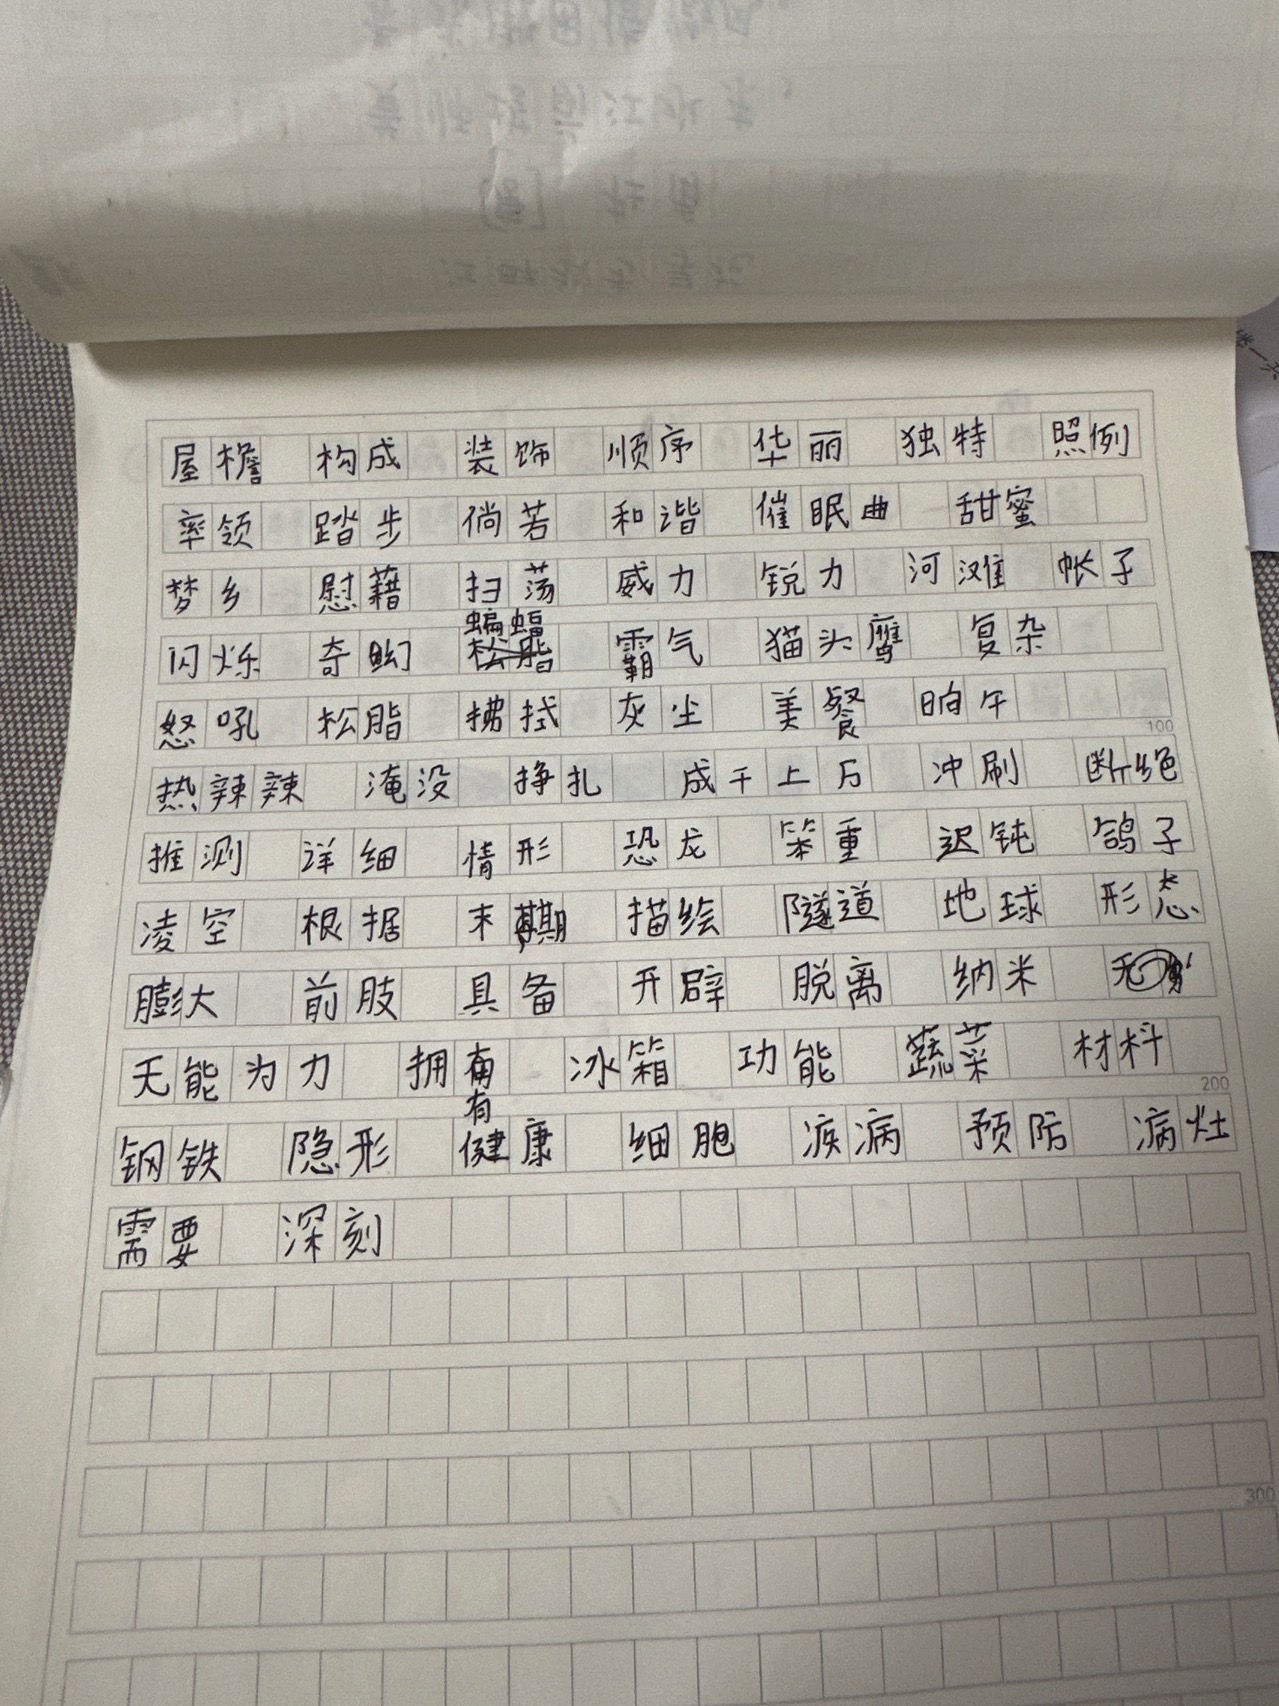 屋檐 构成 装饰 顺序 华丽 独特 照例
率领 踏步 倘若 和谐 催眠曲 甜蜜
梦乡 慰藉 扫荡 威力 锐力 河滩 帐子
闪烁 奇幻 蝙蝠 霸气 猫头鹰 复杂
怒吼 松脂 拂拭 灰尘 美餐 晌午
热辣辣 淹没 挣扎 成千上万 冲刷 断绝
推测 详细 情形 恐龙 笨重 迟钝 鸽子
凌空 根据 末期 描绘 隧道 地球 形态
膨大 前肢 具备 开辟 脱离 纳米 无
无能为力 拥有 冰箱 功能 蔬菜 材料
钢铁 隐形 健康 细胞 疾病 预防 病灶
需要 深刻
100
200
300